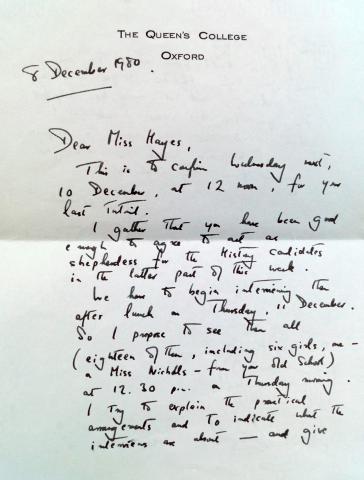 THE QUEEN'S COLLEGE
OXFORD
8 December 1980.
Dear Miss Hayes,
This is to confirm Wednesday next,
10 December, at 12 noon, for your
last Tutorial.
I gather that you have been good
enough to agree to act as
shepherdess for the History candidates
in the latter part of this week.
We have to begin interviewing them
after lunch on Thursday, 11 December.
So I propose to see them all
(eighteen of them, including six girls, one -
a Miss Nicholls - from your old School)
at 12.30 p.m. on Thursday morning.
I try to explain the practical
arrangements and to indicate what the
interviews are about — and give